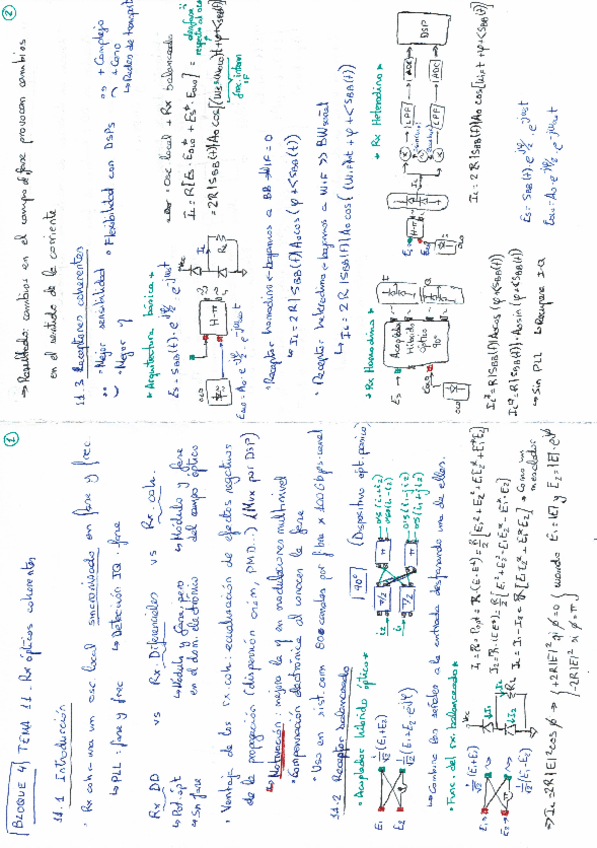 ①
BLOQUE 4) TEMA 11 - Rx ópticos coherentes
11.1 Introducción
· Rx coh → usa un osc. local sincronizado en fase y frec
↳ PLL: fase y frec ↳ Detección IQ: fase
Rx DD vs Rx Diferenciales vs Rx. coh.
↳ Pot. opt ↳ Módulo y fase, pero ↳ Módulo y fase
↳ Sin fase en el dom. electrónico del campo óptico
· Ventaja de los rx. coh: ecualización de efectos negativos
de la propagación (dispersión crom, PMD...) (Mux por DSP)
↳ Motivación: mejora la η en modulaciones multinivel
· Compensación electrónica al conocer la fase
· Uso en sist. com 80 canales por fibra x 100 Gbps-canal
11.2 Receptor balanceado
• Acoplador híbrido óptico •
90° (Dispositivo opt. pasivo)
E1
E2
1/√2 (E1+E2)
π/2
π
↳ Combina las señales a la entrada desfasando una de ellas.
• Func. del rx. balanceado •
E1
E2
1/√2 (E1+E2)
1/√2 (E1-E2)
Vcc
RL
I1 = R · Popt = R · (E·E*) = R/2 [E1²+E2²+E1E2*+E1*E2]
I2 = R · (E·E*) = R/2 [E1²+E2²-E1E2*-E1*E2]
IL = I1 - I2 = R [E1E2*+E1*E2] → Como un
mezclador
⇒ IL = 2R|E|² cos ϕ → { +2R|E|² si ϕ=0 } cuando E1=|E| y E2=|E|·e^jϕ
-2R|E|² si ϕ=π
②
→ Resultado: cambios en el campo de fase provocan cambios
en el sentido de la corriente
11.3 Receptores coherentes
· Mejor sensibilidad · Flexibilidad con DSPs
· Mejor η
+ Complejo
+ Caro
↳ Redes de transport
• Arquitectura básica •
Es = SBB(t) · e^jφ · e^jωst
OLO
ELO = A0 · e^jφ · e^-jωLOt
H-π
Vcc
IL
RL
· Por osc local + Rx balanceado
IL = R [Es · ELO* + Es* · ELO] =
= 2R |SBB(t)| A0 cos[(ωs-ωLO)t+φ+<SBB(t)]
frec. interm
IF
· Receptor homodino → bajamos a BB → IF = 0
↳ IL = 2R |SBB(t)| A0 cos (φ + <SBB(t))
· Receptor heterodino → bajamos a WIF >> BW señal
↳ IL = 2R |SBB(t)| A0 cos [(WIF)t + φ + <SBB(t)]
• Rx Homodino •
Es
ELO
OLO
Acoplador
Híbrido
Óptico
90°
I
Q
IL^I = R |SBB(t)| A0 cos (φ+<SBB(t))
IL^Q = R |SBB(t)| · A0 sin (φ+<SBB(t))
↳ Sin PLL ↳ Recupera I-Q
• Rx Heterodino •
Es
ELO
OLO
H-π
IL
LPF
LPF
ADC
ADC
DSP
IL = 2R |SBB(t)| A0 cos [WIFt + φ + <SBB(t)]
Es = SBB(t) · e^jφ · e^jωst
ELO = A0 · e^jφ · e^-jωLOt